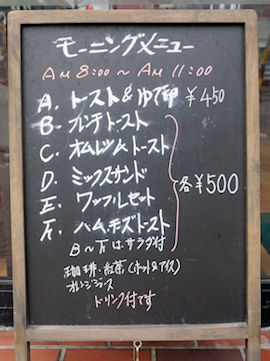 モーニングメニュー
AM 8:00 ～ AM 11:00
A. トースト&ゆで卵 ¥450
B. フレンチトースト
C. オムレツ&トースト
D. ミックスサンド 各¥500
E. ワッフルセット
F. ハムチーズトースト
B～Fはサラダ付
珈琲・紅茶(ホット&アイス)
オレンジジュース
ドリンク付です